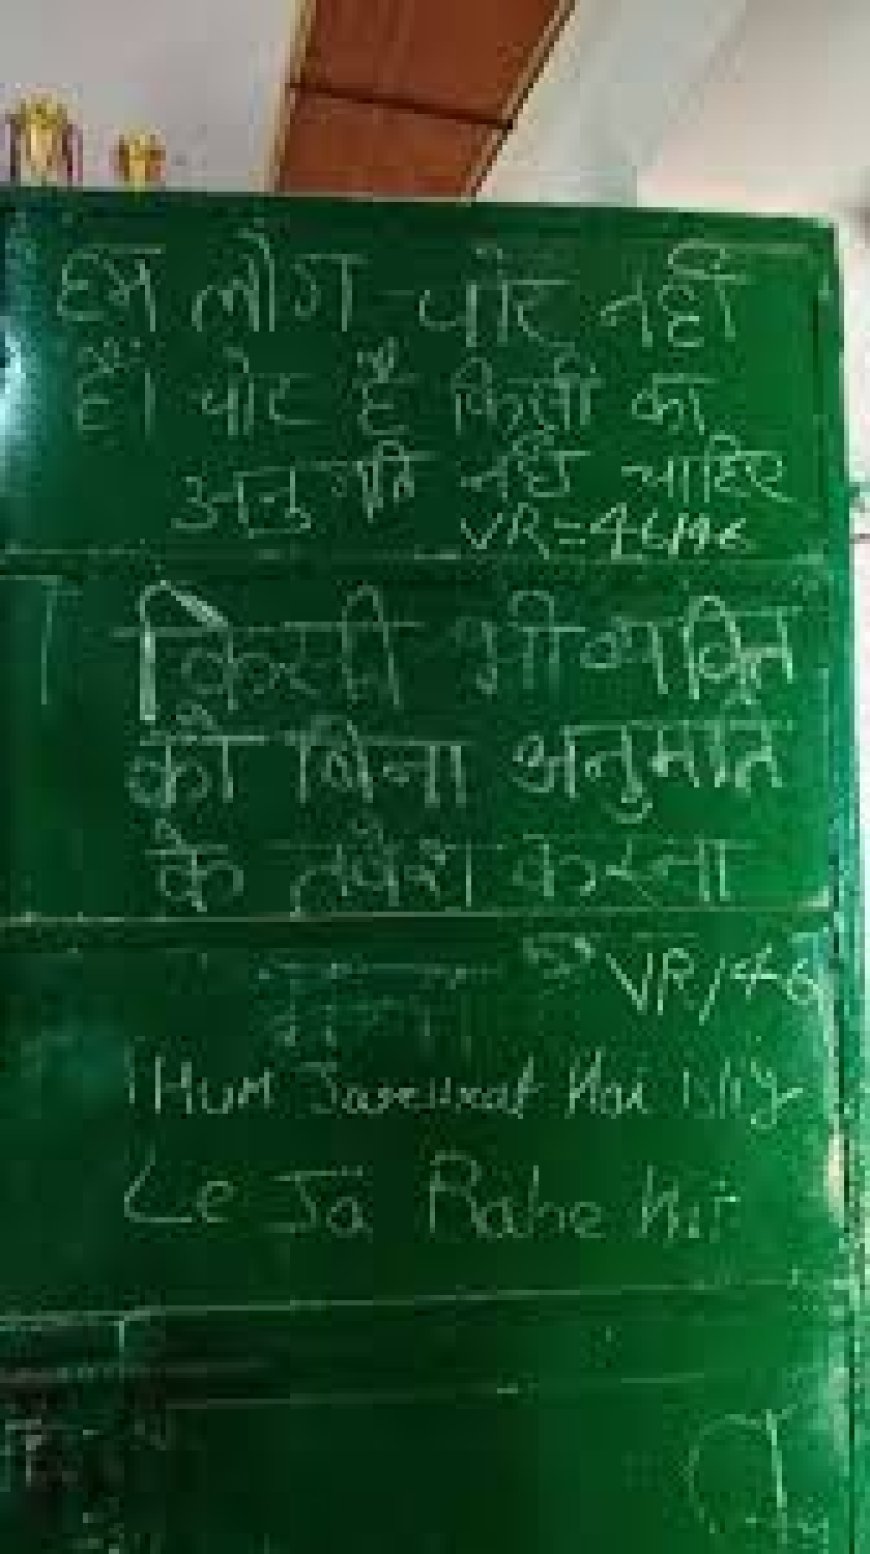 हम लोग चोर नहीं
हैं चोर हैं किसी का
अनुमति नहीं चाहिए
VR=46/46
किसी भी व्यक्ति
को बिना अनुमति
के करना
VR/46
HUM Jarurat Hai
Le Ja Rahe Hai